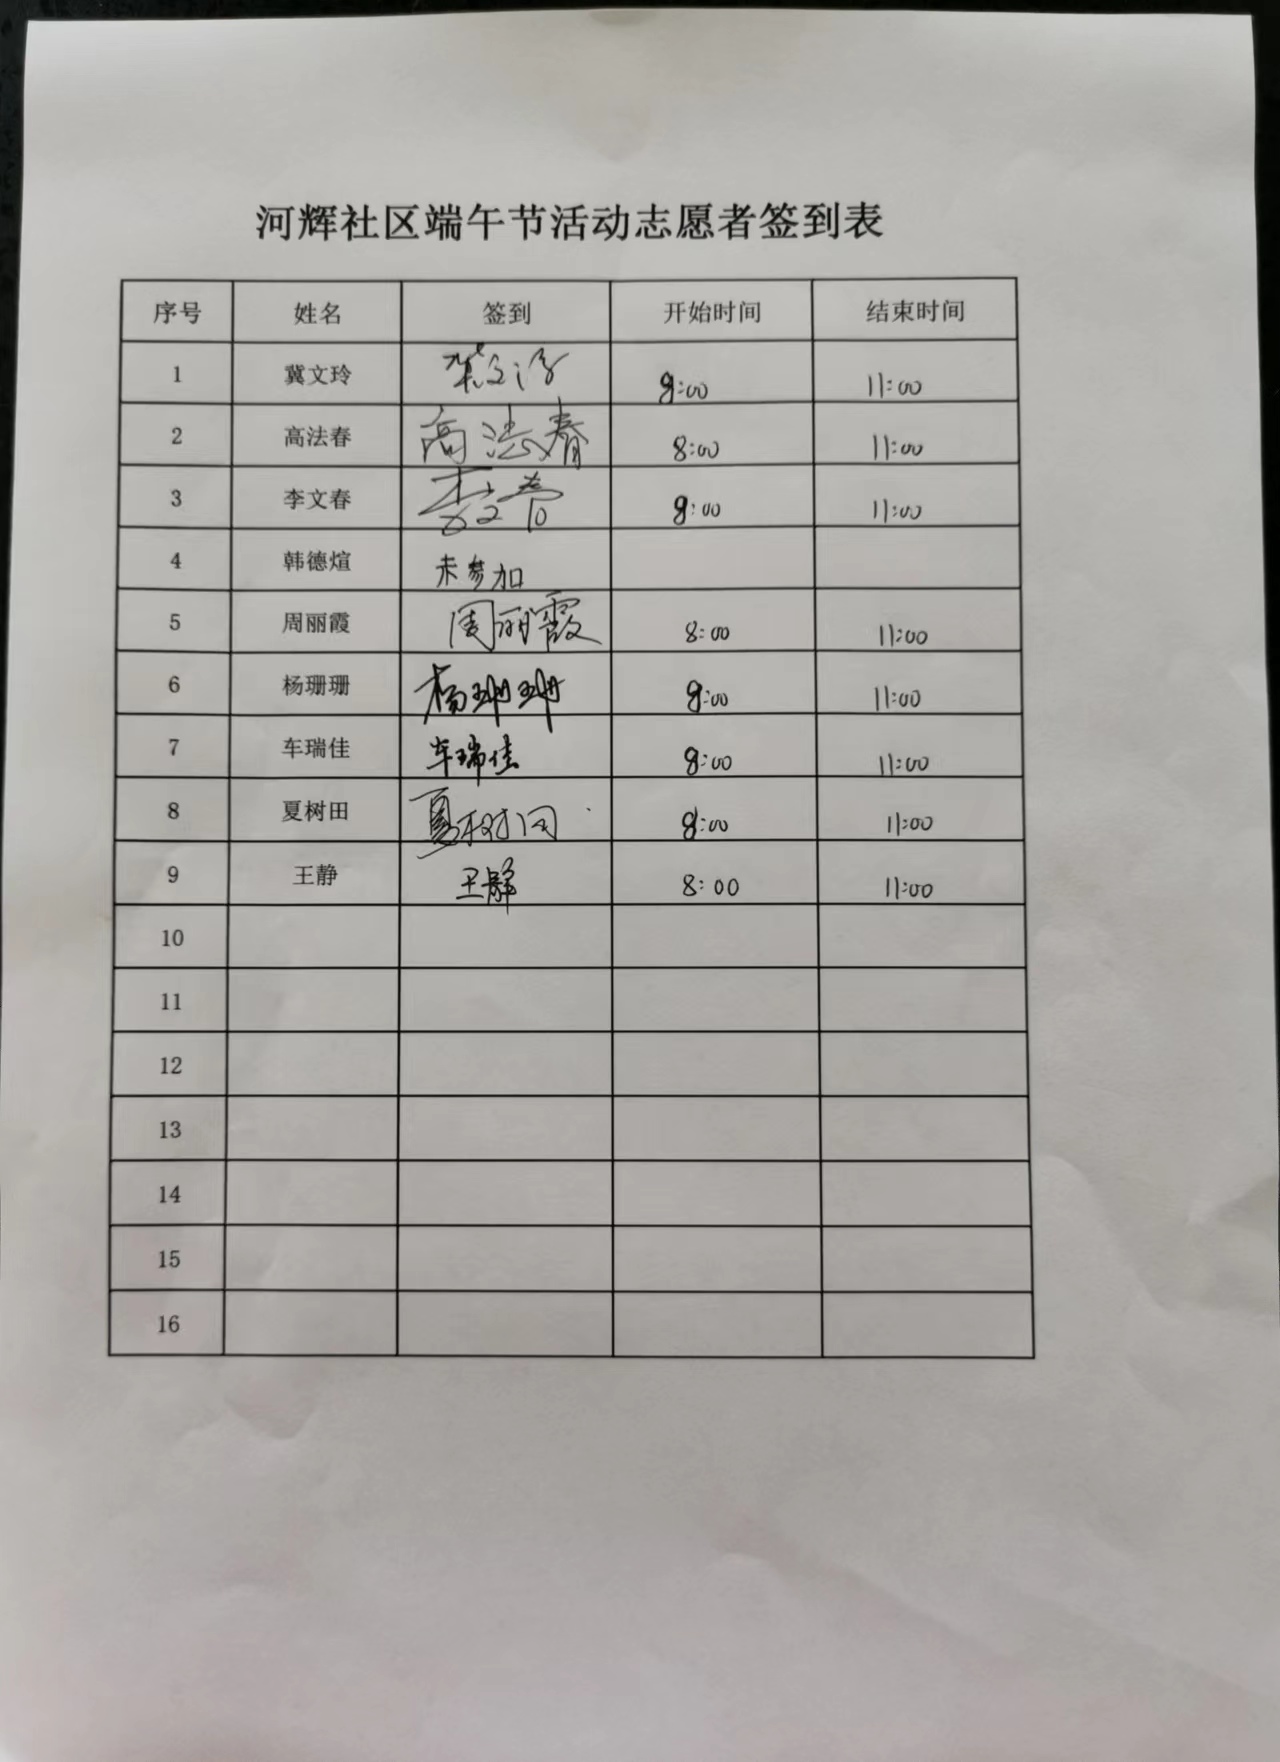 河辉社区端午节活动志愿者签到表
序号 姓名 签到 开始时间 结束时间
1 冀文玲 冀文玲 8:00 11:00
2 高法春 高法春 8:00 11:00
3 李文春 李文春 8:00 11:00
4 韩德煊 未参加
5 周丽霞 周丽霞 8:00 11:00
6 杨珊珊 杨珊珊 8:00 11:00
7 车瑞佳 车瑞佳 8:00 11:00
8 夏树田 夏树田 8:00 11:00
9 王静 王静 8:00 11:00
10
11
12
13
14
15
16